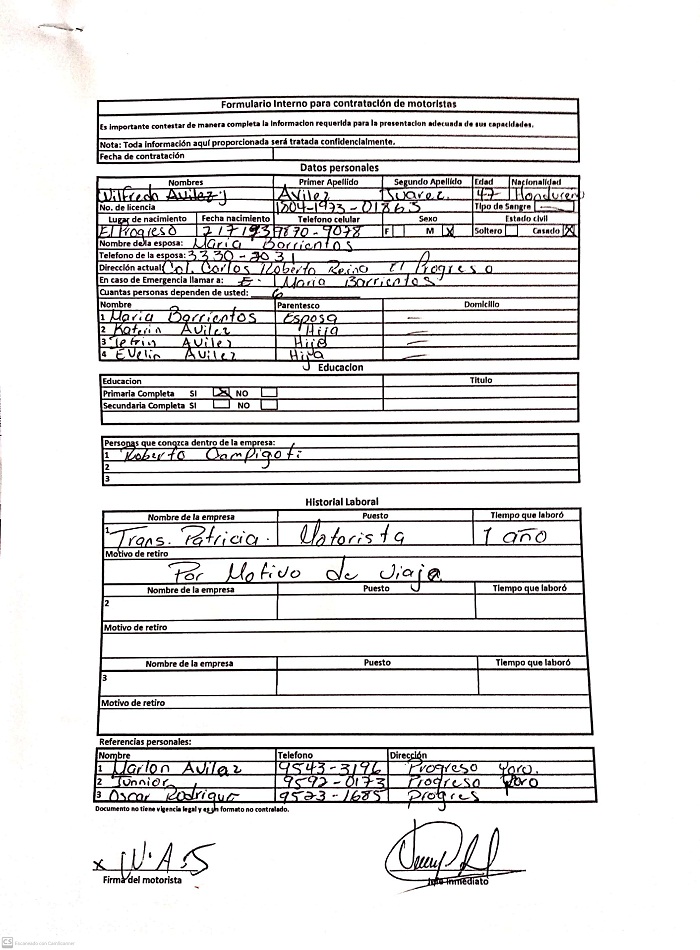 Formulario Interno para contratación de motoristas
Es importante contestar de manera completa la informacion requerida para la presentacion adecuada de sus capacidades.
Nota: Toda información aquí proporcionada será tratada confidencialmente.
Fecha de contratación
Datos personales
Nombres Primer Apellido Segundo Apellido Edad Nacionalidad
Wilfredo Avilez Juarez 47 Hondureño
No. de licencia 1804-1973-01863 Tipo de Sangre
Lugar de nacimiento Fecha nacimiento Telefono celular Sexo Estado civil
El Progreso 9870-9078 F M X Soltero Casado X
Nombre de la esposa: Maria Barrientos
Telefono de la esposa: 3330-2031
Dirección actual: Col. Carlos Roberto Reina El Progreso
En caso de Emergencia llamar a: E. Maria Barrientos
Cuantas personas dependen de usted: 6
Nombre Parentesco Domicilio
1 Maria Barrientos Esposa —
2 Katerin Avilez Hija —
3 Avilez Hija —
4 Evelin Avilez Hija —
Educacion
Educacion Titulo
Primaria Completa SI X NO
Secundaria Completa SI NO
Personas que conozca dentro de la empresa:
1 Roberto
2
3
Historial Laboral
Nombre de la empresa Puesto Tiempo que laboró
1 Trans. Patricia. Motorista 1 año
Motivo de retiro
Por Motivo de viaje
Nombre de la empresa Puesto Tiempo que laboró
2
Motivo de retiro
Nombre de la empresa Puesto Tiempo que laboró
3
Motivo de retiro
Referencias personales:
Nombre Telefono Dirección
1 Marlon Avilez 9543-3196 Progreso Yoro.
2 Junnior 9592-0173 Progreso Yoro
3 Oscar Rodrigue 9523-1685 Progres
Documento no tiene vigencia legal y es un formato no controlado.
x W.A.J
Firma del motorista Jefe Inmediato
CS Escaneado con CamScanner